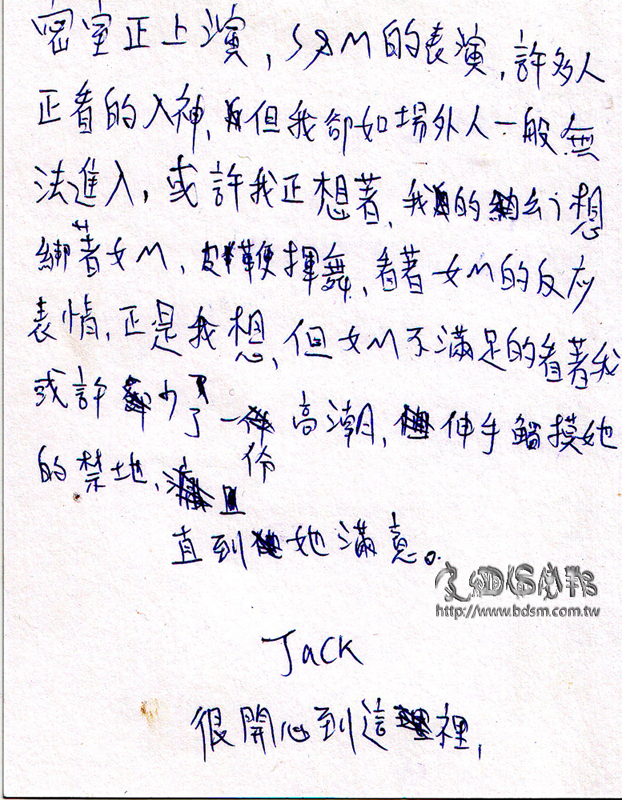 密室正上演, S&M的表演, 許多人
正看的入神, 但我卻如場外人一般無
法進入, 或許我正想著, 我的幻想
綁著女M, 皮鞭揮舞, 看著女M的反应
表情, 正是我想, 但女M不滿足的看著我
或許少了一份高潮, 伸手觸摸她
的禁地,
直到她滿意。
http://www.bdsm.com.tw
Jack
很開心到這裡,